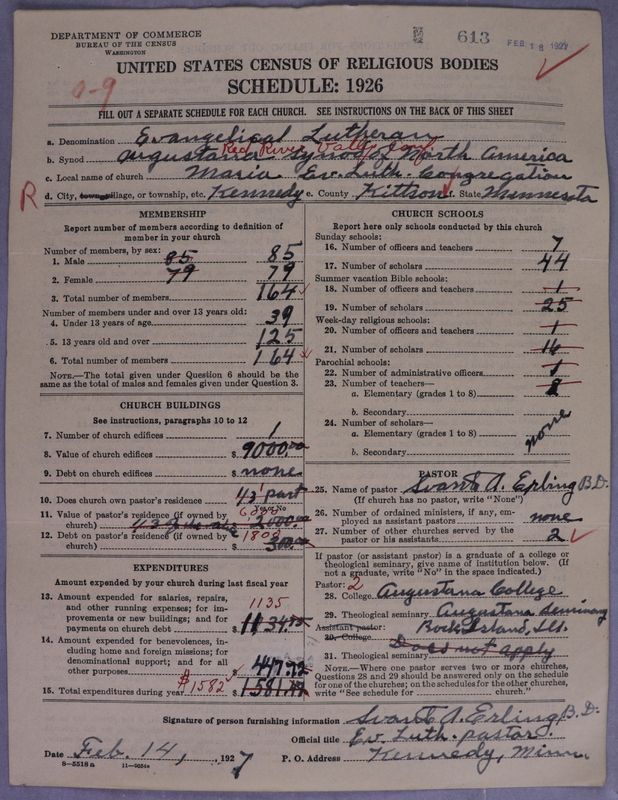 DEPARTMENT OF COMMERCE
BUREAU OF THE CENSUS
WASHINGTON
613
FEB 18 1927
UNITED STATES CENSUS OF RELIGIOUS BODIES
SCHEDULE: 1926
0-9
FILL OUT A SEPARATE SCHEDULE FOR EACH CHURCH. SEE INSTRUCTIONS ON THE BACK OF THIS SHEET
a. Denomination Evangelical Lutheran
Red River Valley Conf.
b. Synod Augustana Synod of North America
c. Local name of church Maria Ev. Luth. Congregation
R d. City, town, village, or township, etc. Kennedy e. County Kittson f. State Minnesota
MEMBERSHIP
Report number of members according to definition of member in your church
Number of members, by sex:
1. Male 85 85
2. Female 79 79
3. Total number of members 164
Number of members under and over 13 years old:
4. Under 13 years of age 39
5. 13 years old and over 125
6. Total number of members 164
NOTE.—The total given under Question 6 should be
same as the total of males and females given under Question 3.
CHURCH BUILDINGS
See instructions, paragraphs 10 to 12
7. Number of church edifices 1
8. Value of church edifices $ 9000.00
9. Debt on church edifices $ none
10. Does church own pastor's residence 1/3 part
Yes or No
11. Value of pastor's residence (if owned by 6000
church) $ 2000.00
12. Debt on pastor's residence (if owned by 1800
church) $ 300.00
EXPENDITURES
Amount expended by your church during last fiscal year
13. Amount expended for salaries, repairs,
and other running expenses; for im-
provements or new buildings; and for
payments on church debt 1135 $ 1134
14. Amount expended for benevolences, in-
cluding home and foreign missions; for
denominational support; and for all
other purposes $ 447.72
15. Total expenditures during year $1582 $ 1581
CHURCH SCHOOLS
Report here only schools conducted by this church
Sunday schools:
16. Number of officers and teachers 7
17. Number of scholars 44
Summer vacation Bible schools:
18. Number of officers and teachers 1
19. Number of scholars 25
Week-day religious schools:
20. Number of officers and teachers 1
21. Number of scholars 14
Parochial schools:
22. Number of administrative officers 1
23. Number of teachers—
a. Elementary (grades 1 to 8)
b. Secondary
24. Number of scholars—
a. Elementary (grades 1 to 8) none
b. Secondary
PASTOR
25. Name of pastor Svante A. Erling B.D.
(If church has no pastor, write "None")
26. Number of ordained ministers, if any, em-
ployed as assistant pastors none
27. Number of other churches served by the
pastor or his assistants 2
If pastor (or assistant pastor) is a graduate of a college or
theological seminary, give name of institution below. (If
not a graduate, write "No" in the space indicated.)
Pastor: 2
28. College Augustana College
29. Theological seminary Augustana Seminary
Assistant pastor: Rock Island, Ill.
30. College
Does not apply
31. Theological seminary
NOTE.—Where one pastor serves two or more churches,
Questions 28 and 29 should be answered only on the schedule
for one of the churches; on the schedules for the other churches,
write "See schedule for church."
Signature of person furnishing information Svante A. Erling B.D.
Official title Ev. Luth. pastor.
Date Feb. 14, 1927 P. O. Address Kennedy, Minn.
8—5518a 11—9054a